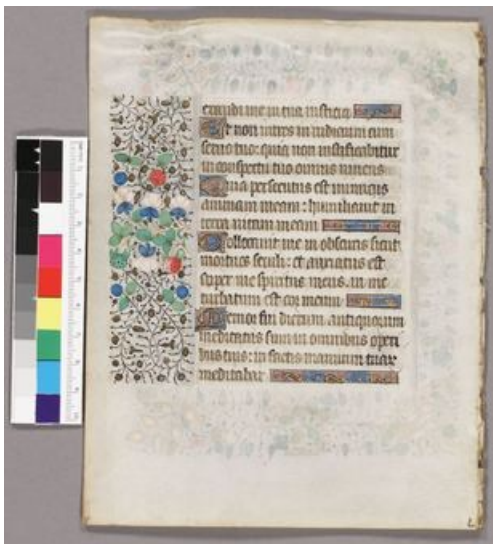 exaudi me in tua iusticia
Et non intres in iudicium cum
servo tuo: quia non iustificabitur
in conspectu tuo omnis vivens
Quia persecutus est inimicus
animam meam: humiliavit in
terra vitam meam
Collocavit me in obscuris sicut
mortuos seculi: et anxiatus est
super me spiritus meus in me
turbatum est cor meum
Memor fui dierum antiquorum
meditatus sum in omnibus operi
bus tuis: in factis manuum tuar
meditabar